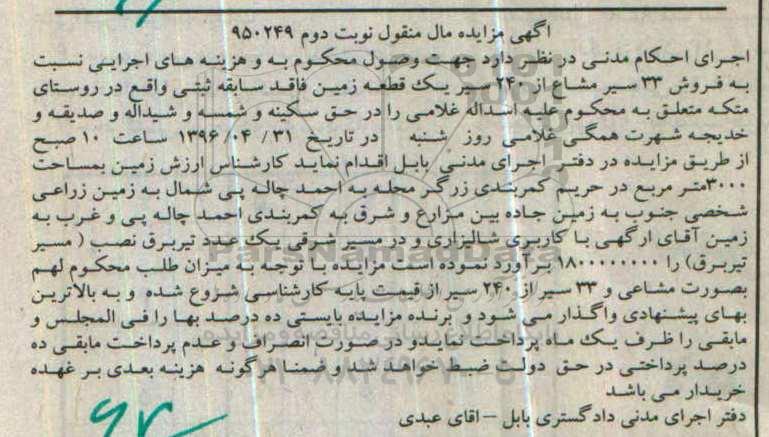 آگهی مزایده مال منقول نوبت دوم ۹۵۰۲۴۹
اجرای احکام مدنی در نظر دارد جهت وصول محکوم به و هزینه های اجرایی نسبت
به فروش ۳۳ سیر مشاع از ۲۴۰ سیر یک قطعه زمین فاقد سابقه ثبتی واقع در روستای
متکه متعلق به محکوم علیه اسداله غلامی را در حق سکینه و شمسه و شیداله و صدیقه و
خدیجه شهرت همگی غلامی روز شنبه در تاریخ ۳۱ / ۰۴ / ۱۳۹۶ ساعت ۱۰ صبح
از طریق مزایده در دفتر اجرای مدنی بابل اقدام نماید کارشناس ارزش زمین بمساحت
۳۰۰۰متر مربع در حریم کمربندی زرگر محله به احمد چاله پی شمال به زمین زراعی
شخصی جنوب به زمین جاده بین مزارع و شرق به کمربندی احمد چاله پی و غرب به
زمین آقای ارگهی با کاربری شالیزاری و در مسیر شرقی یک عدد تیربرق نصب ( مسیر
تیربرق) را ۹۸۰۰۰۰۰۰۰۰ برآورد نموده است مزایده با توجه به میزان طلب محکوم لهم
بصورت مشاعی و ۳۳ سیر از ۲۴۰ سیر از قیمت پایه کارشناسی شروع شده و به بالاترین
بهای پیشنهادی واگذار می شود و برنده مزایده بایستی ده درصد بها را فی المجلس و
مابقی را ظرف یک ماه پرداخت نمایدو در صورت انصراف و عدم پرداخت مابقی ده
درصد پرداختی در حق دولت ضبط خواهد شد و ضمنا هرگونه هزینه بعدی بر عهده
خریدار می باشد
دفتر اجرای مدنی دادگستری بابل – اقای عبدی
ParsNamadData